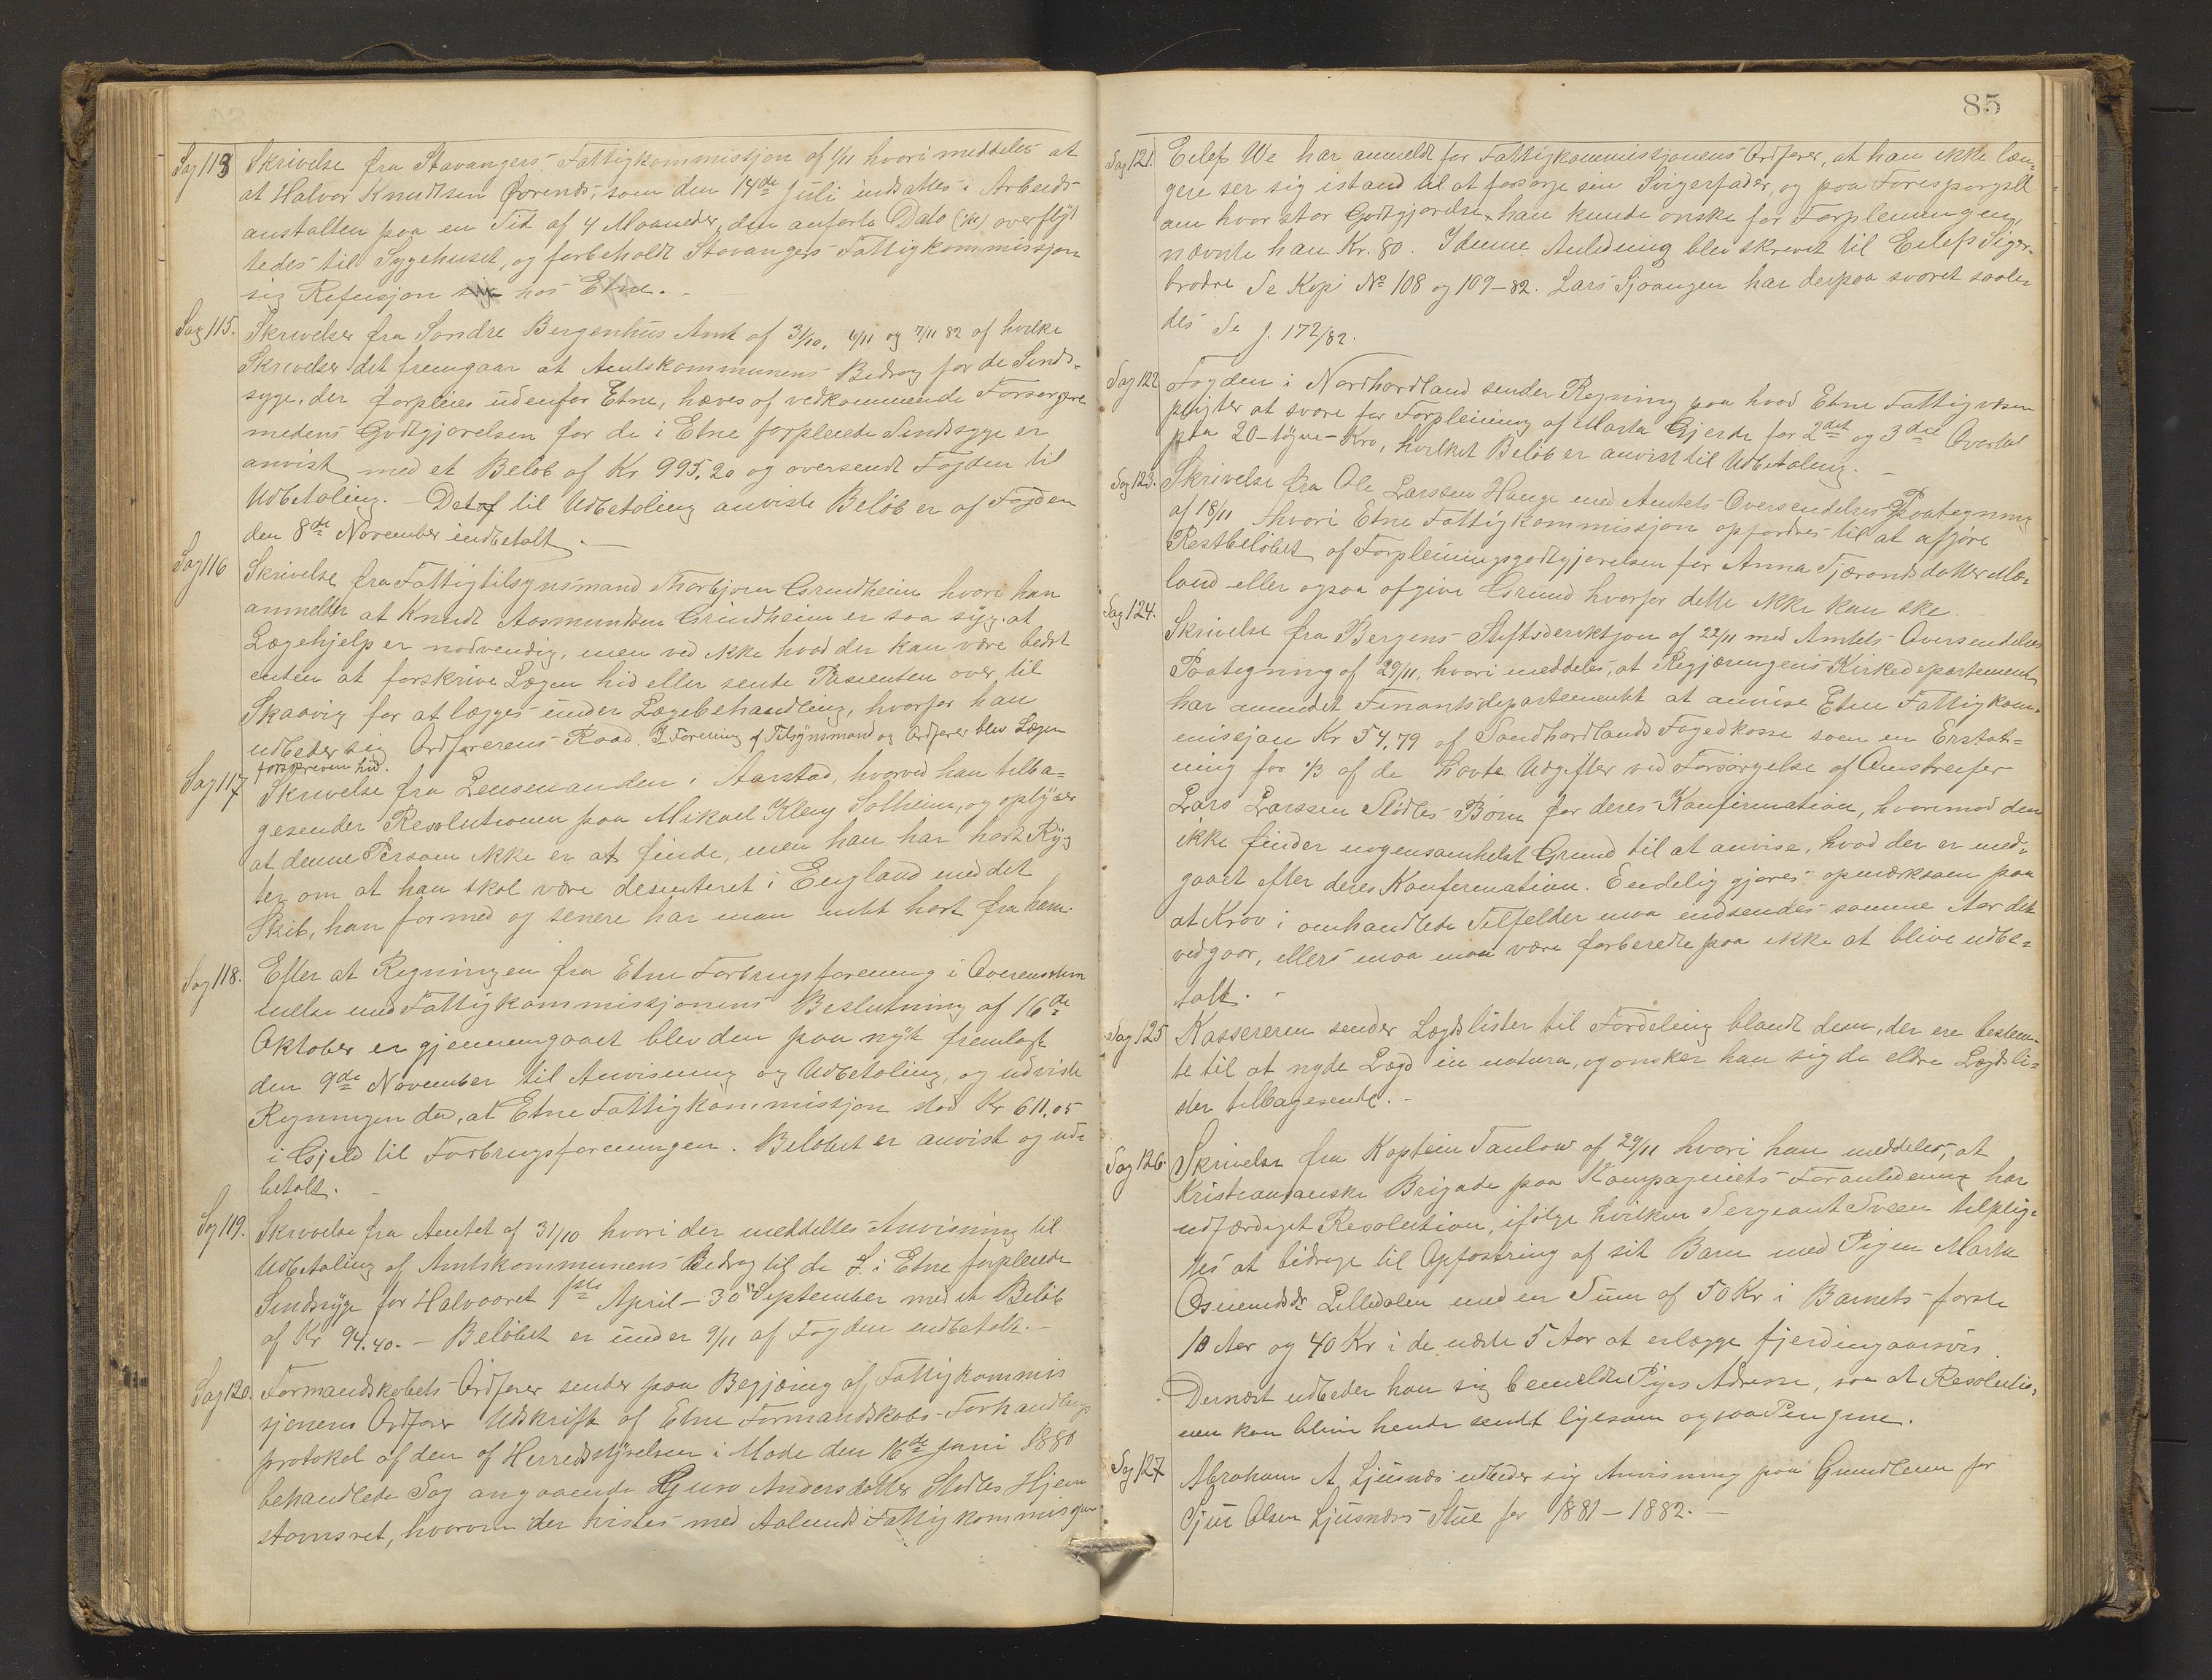 Sag 113 Skrivelse fra Stavangers Fattigkommissjon af 1/11 hvori meddeles at
at Halvor Knudtsen Øvrends, som den 14de Juli indsattes i Arbeids-
anstalten paa en Tid af 4 Maaneder, den anførte Dato (1/11) overflyt
tedes til Sygehuset, og forbeholdt Stavangers Fattigkommissjon
sig Refusjon hos Etne.
Sag 115. Skrivelser fra Søndre Bergenhus Amt af 31/10, 4/11 og 7/11 82 af hvilke
Skrivelser det fremgaar at Amtskommunens Bidrag for de Sinds-
syge, der forpleies udenfor Etne, hæves af vedkommende Forsørgere
medens Godtgjørelsen for de i Etne forpleiede Sindssyge er
anvist med et Beløb af Kr 995,20 og oversendt Fogden til
Udbetaling. Det af til Udbetaling anviste Beløb er af Fogden
den 8de November indbetalt.
Sag 116 Skrivelse fra Fattigtilsynsmand Thorbjørn Grindheim hvori han
anmelder at Knudt Aasmundsen Grindheim er saa syg at
Lægehjelp er nødvendig, men ved ikke hvad der kan være bedst
enten at forskrive Lægen hid eller sende Pasienten over til
Skaavig for at lægges under Lægebehandling, hvorfor han
udbeder sig Ordførerens Raad. I Forening af Tilsynsmand og Ordfører blev Lægen
forskreven hid.
Sag 117 Skrivelse fra Lensmanden i Aarstad, hvorved han tilba=
gesender Resolutionen paa Mikael Kleng Solheim, og oplyser
at denne Person ikke er at finde, men han har hørt Ryg
ter om at han skal være deserteret i England med det
Skib, han for med og senere har man intet hørt fra ham.
Sag 118. Efter at Regningen fra Etne Forbrugsforening i Overensstem
melse med Fattigkommissjonens Beslutning af 16de
Oktober er gjennemgaaet blev den paa nyt fremlagt
den 9de November til Anvisning og Udbetaling, og udviste
Regningen da, at Etne Fattigkommissjon stod Kr 611,05
i Gjeld til Forbrugsforeningen. Beløbet er anvist og ud=
betalt.
Sag 119. Skrivelse fra Amtet af 31/10 hvori der meddeltes Anvisning til
Udbetaling af Amtskommunens Bidrag til de i Etne forpleiede
Sindssyge for Halvaaret 1ste April – 30te September med et Beløb
af Kr 94.40. – Beløbet er under 9/11 af Fogden indbetalt. –
Sag 120. Formandskabets Ordfører sender paa Begjæring af Fattigkommis
sjonens Ordfører Udskrift af Etne Formandskabs-Forhandlings
protokol af den af Herredsstyrelsen i Møde den 16de Juni 1880
behandlede Sag angaaende Guro Andersdatter Stødles Hjem
stavnsret, hvorom der tvistes med Aalunds Fattigkommisjon
85
Sag 121. Eilef We har anmeldt for Fattigkommissjonens Ordfører, at han ikke læn-
gere ser sig istand til at forsørge sin Svigerfader, og paa Forespørgsel
om hvor stor Godtgjørelse han kunde ønske for Forpleiningen,
nævnte han Kr. 80. I denne Anledning blev skrevet til Eilefs Sviger-
brødre Se Kopi No 108 og 109–82. Lars Sjoangen har derpaa svaret saale
des Se J. 172/82.
Sag 122 Fogden i Nordhordland sender Regning paa hvad Etne Fattigvæsen
pligter at svare for Forpleining af Marta Gjerde for 2det og 3die Qvartal
paa 20 – tyve – Kro, hvilket Beløb er anvist til Udbetaling. –
Sag 123. Skrivelse fra Ole Larssen Hauge med Amtets Oversendelses Paategning
af 18/11 hvori Etne Fattigkommissjon opfordres til at afgjøre
Restbeløbet af Forpleiningsgodtgjørelsen for Anna Tjærandsdatter Mæ-
land eller ogsaa afgive Grund hvorfor dette ikke kan ske.
Sag 124. Skrivelse fra Bergens Stiftsdirektsjon af 22/11 med Amtets Oversendelses
Paategning af 29/11, hvori meddeles, at Regjæringens Kirkedepartement
har anmodet Finantsdepartementet at anvise Etne Fattigkom-
missjon Kr 54,79 af Søndhordlands Fogedkasse som en Erstat=
ning for 1/3 af de havte Udgifter ved Forsørgelse af Omstreifer
Lars Larssen Stødles Børn før deres Konfirmation, hvorimod den
ikke finder nogensomhelst Grund til at anvise, hvad der er med-
gaaet efter deres Konfirmation. Endelig gjøres opmærksom paa
at Krav i omhandlede Tilfelder maa indsendes samme Aar det
vedgaar, ellers maa man være forberedte paa ikke at blive udbe=
talt. –
Sag 125 Kassereren sender Lægdslister til Fordeling blandt dem, der ere bestem-
te til at nyde Lægd in natura, og ønsker han sig de eldre Lægdsli=
ster tilbagesendte. –
Sag 126. Skrivelse fra Kaptein Taulow af 29/11 hvori han meddeler, at
Kristiansanske Brigade paa Kompagniets Foranledning har
udfærdiget Resolution, ifølge hvilken Sergeant Tveen tilplig-
tes at bidrage til Opfostring af sit Barn med Pigen Marta
Osmundsdr Lilledalen med en Sum af 50 Kr i Barnets første
10 Aar og 40 Kr i de næste 5 Aar at erlægge fjerdingaarsvis.
Dernæst udbeder han sig bemeldte Piges Adresse, saa at Resolutio-
nen kan blive hende sendt ligesom ogsaa Pengene.
Sag 127 Abraham A. Ljusnæs udbeder sig Anvisning paa Grundleien for
Sjur Olsen Ljusnæs's Stue for 1881 – 1882. –